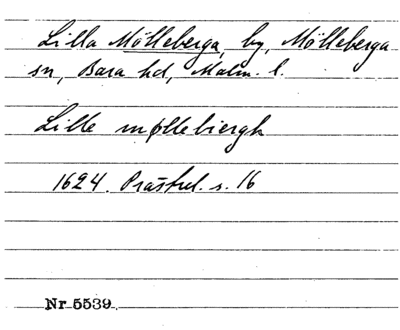 Lilla Mölleberga, by, Mölleberga
sn, Bara hd, Malm. l.
Lille møllebiergh
1624. Prästrel. s. 16
Nr 5539.